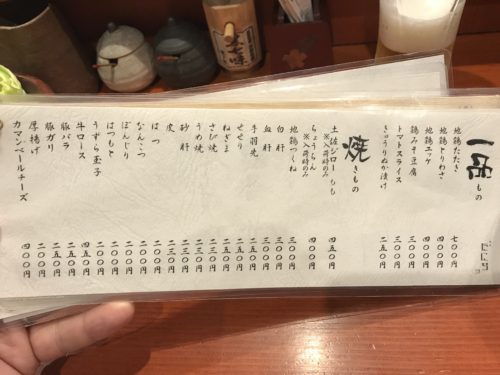 一品もの
地鶏たたき 七〇〇円
地鶏とりわさ 四〇〇円
地鶏エッグ 四〇〇円
鶏みそ豆腐 三〇〇円
トマトスライス 三〇〇円
きゅうりぬか漬け 二五〇円
焼きもの
土佐ジローもも 四五〇円
※入荷時のみ
ちょうちん 四〇〇円
※入荷時のみ
地鶏つくね 三〇〇円
白肝 三〇〇円
血肝 三〇〇円
手羽先 二五〇円
せせり 二五〇円
ねぎま 二五〇円
さび焼 二五〇円
うめ焼 二五〇円
砂肝 二五〇円
皮 二三〇円
はつ 二〇〇円
なんこつ 二〇〇円
ぼんじり 二〇〇円
はつもと 二〇〇円
うずら玉子 二〇〇円
牛ロース 四五〇円
豚バラ 二五〇円
豚ガリ 二五〇円
厚揚げ 三〇〇円
カマンベールチーズ 四〇〇円
七味